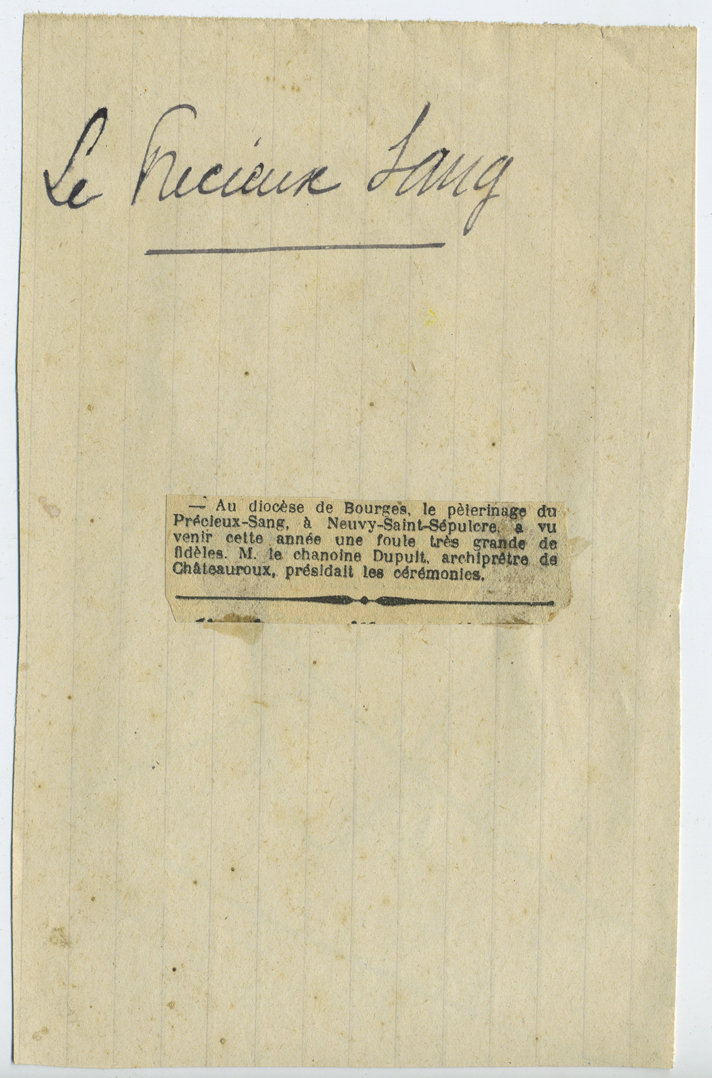 Le Precieux Sang
— Au diocèse de Bourges, le pèlerinage du
Précieux-Sang, à Neuvy-Saint-Sépulcre, a vu
venir cette année une foule très grande de
fidèles. M. le chanoine Dupuit, archiprêtre de
Châteauroux, présidait les cérémonies.